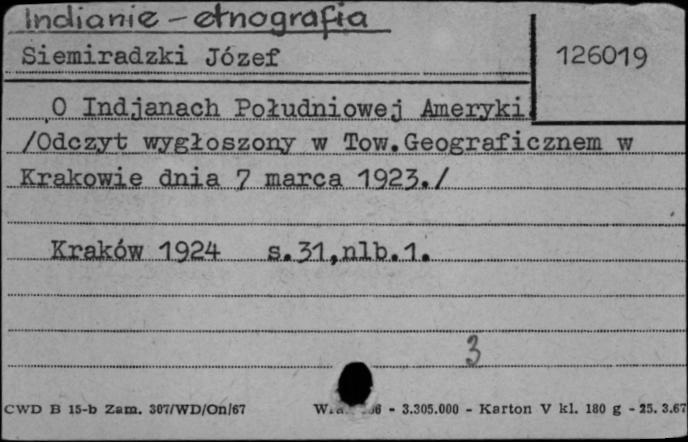 Indianie - etnografia
Siemiradzki Józef
126019
O Indjanach Południowej Ameryki.
/Odczyt wygłoszony w Tow.Geograficznem w
Krakowie dnia 7 marca 1923./
Kraków 1924 s.31,nlb.1.
3
CWD B 15-b Zam. 307/WD/On/67 - 3.305.000 - Karton V kl. 180 g - 25. 3.67